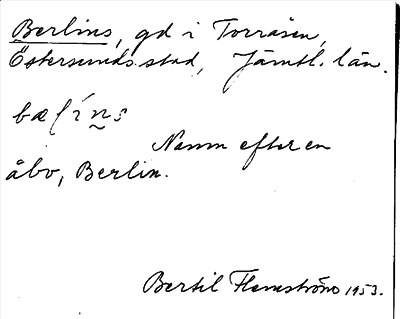 Berlins, gd i Torråsen,
Östersunds stad, Jämtl. län.
bæɭíns
Namn efter en
åbo, Berlin.
Bertil Flemström 1953.